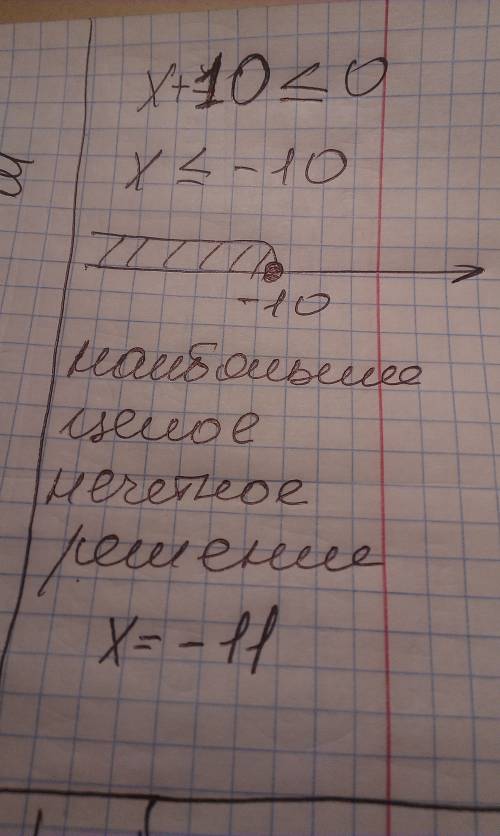 x+10≤0
x ≤ -10
-10
наибольшее
целое
нечетное
решение
x = -11